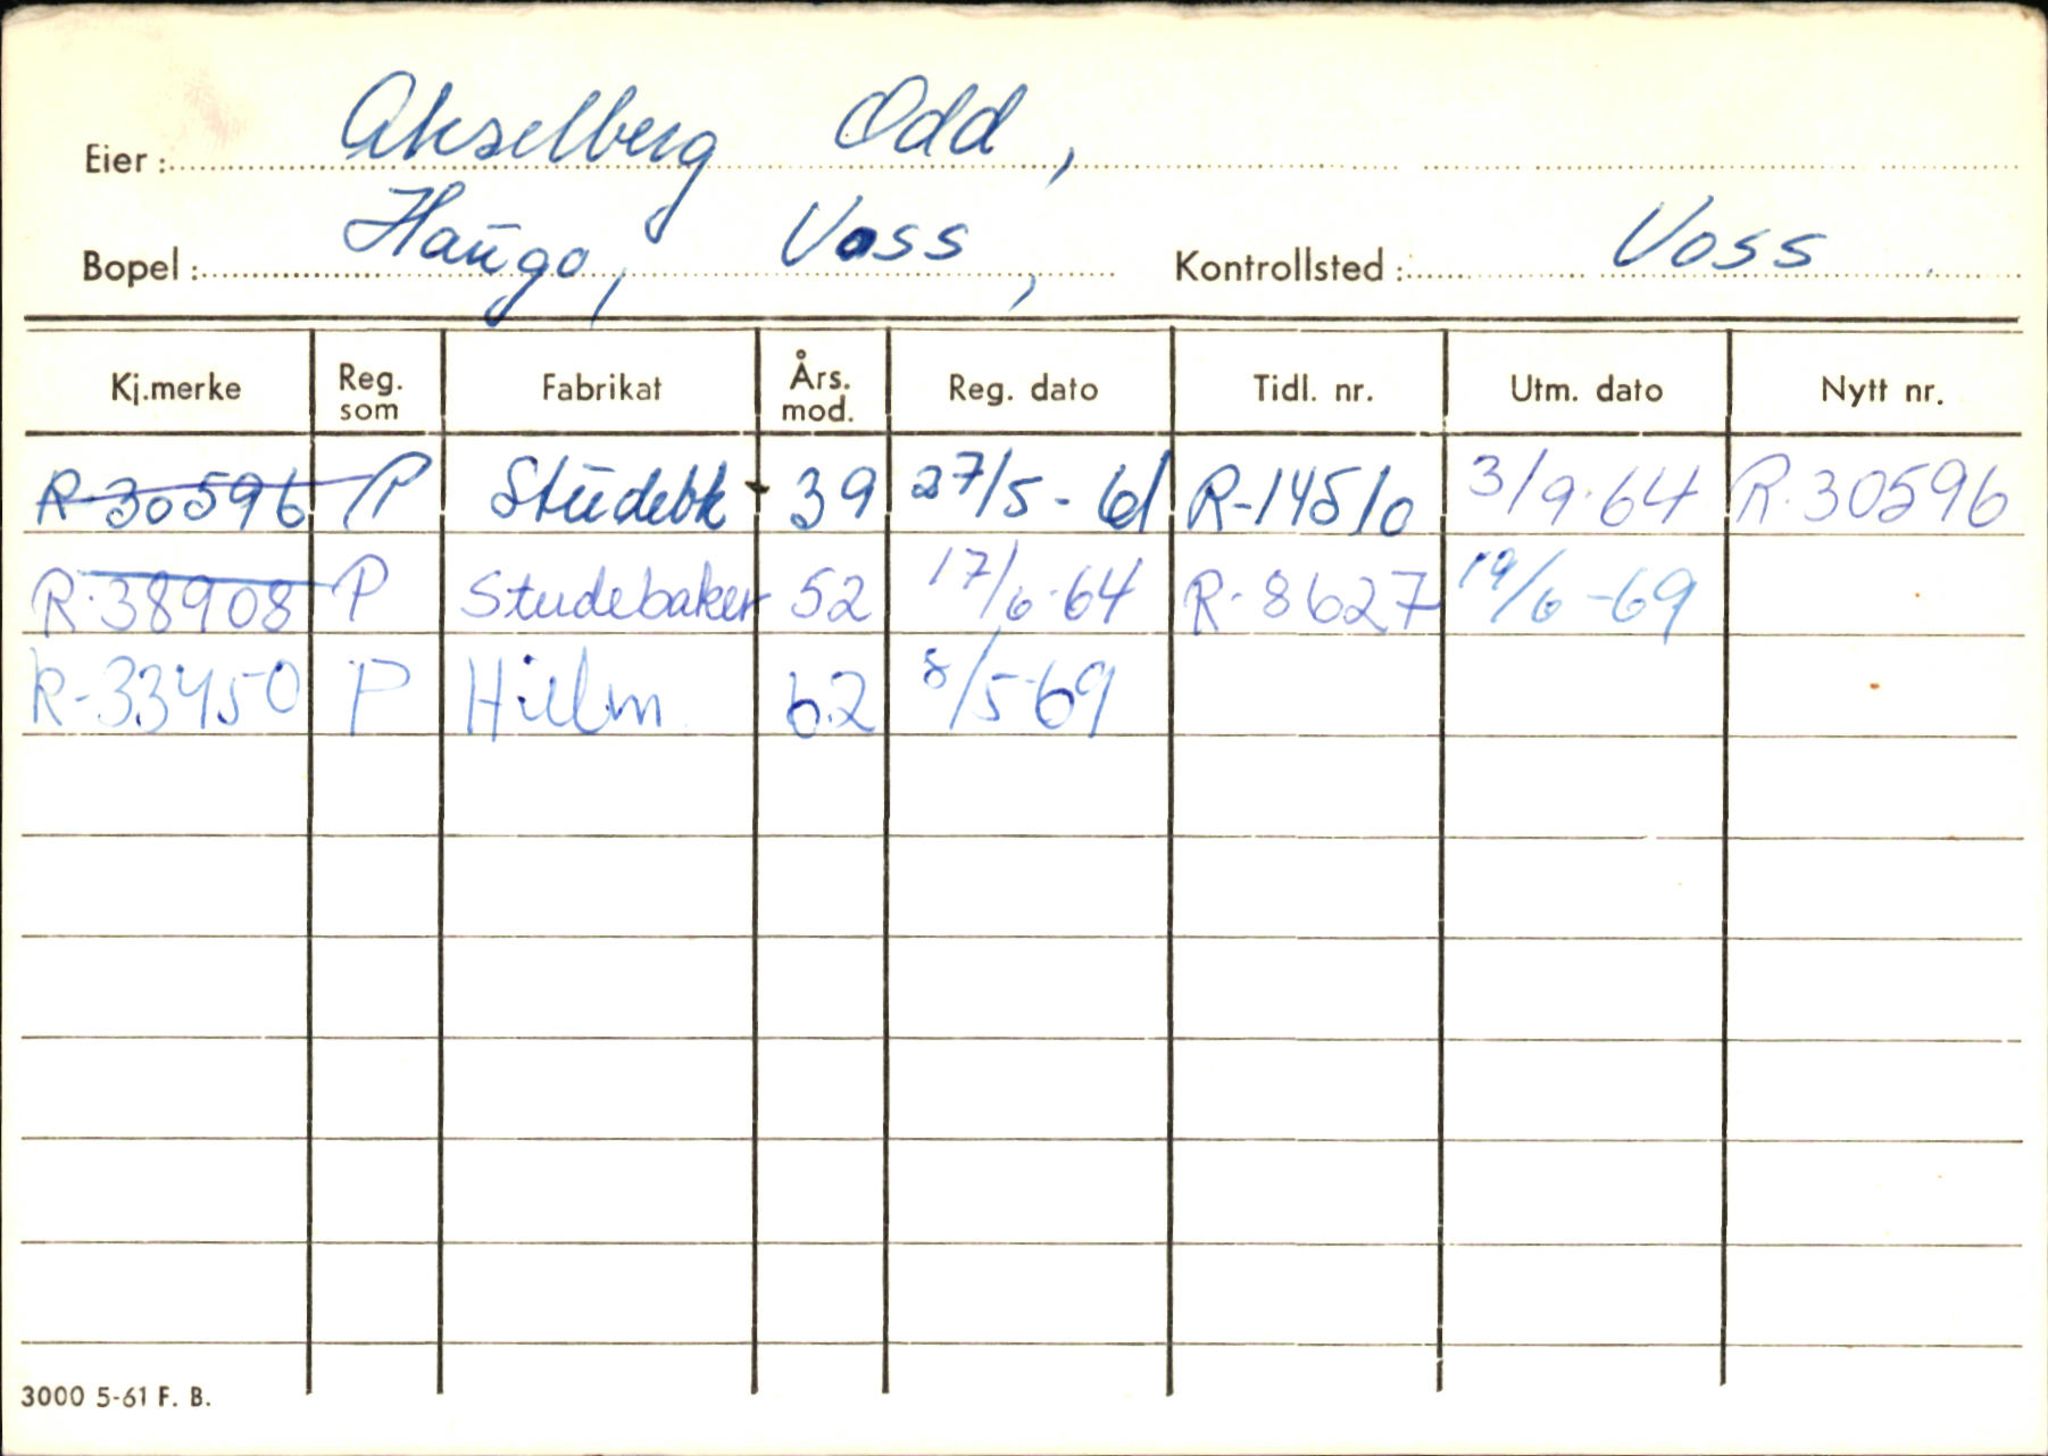 Eier: Akselberg Odd,
Bopel: Haugo, Voss, Kontrollsted: Voss
Kj.merke Reg. som Fabrikat Års. mod. Reg. dato Tidl. nr. Utm. dato Nytt nr.
R-30596 P Studebk - 39 27/5-61 R-14510 3/9-64 R-30596
R-38908 P Studebaker 52 17/6-64 R-8627 19/6-69
R-33450 P Hillm 62 8/5-69
3000 5-61 F. B.